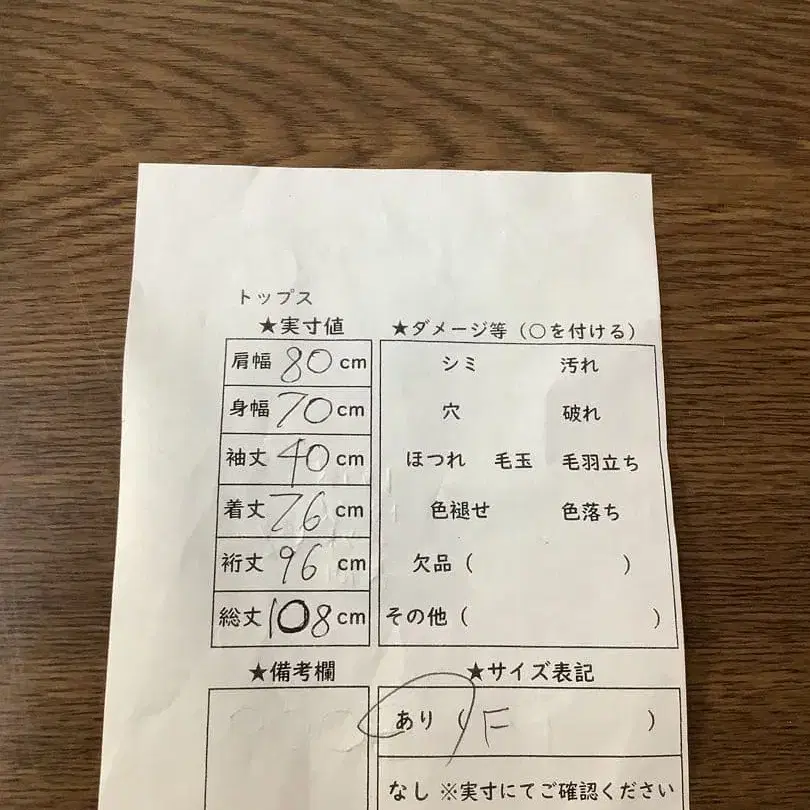 トップス
★実寸値
肩幅 80 cm
身幅 70 cm
袖丈 40 cm
着丈 76 cm
裄丈 96 cm
総丈 108 cm
★ダメージ等（○を付ける）
シミ 汚れ
穴 破れ
ほつれ 毛玉 毛羽立ち
色褪せ 色落ち
欠品（ ）
その他（ ）
★備考欄
★サイズ表記
あり（ F ）
なし ※実寸にてご確認ください